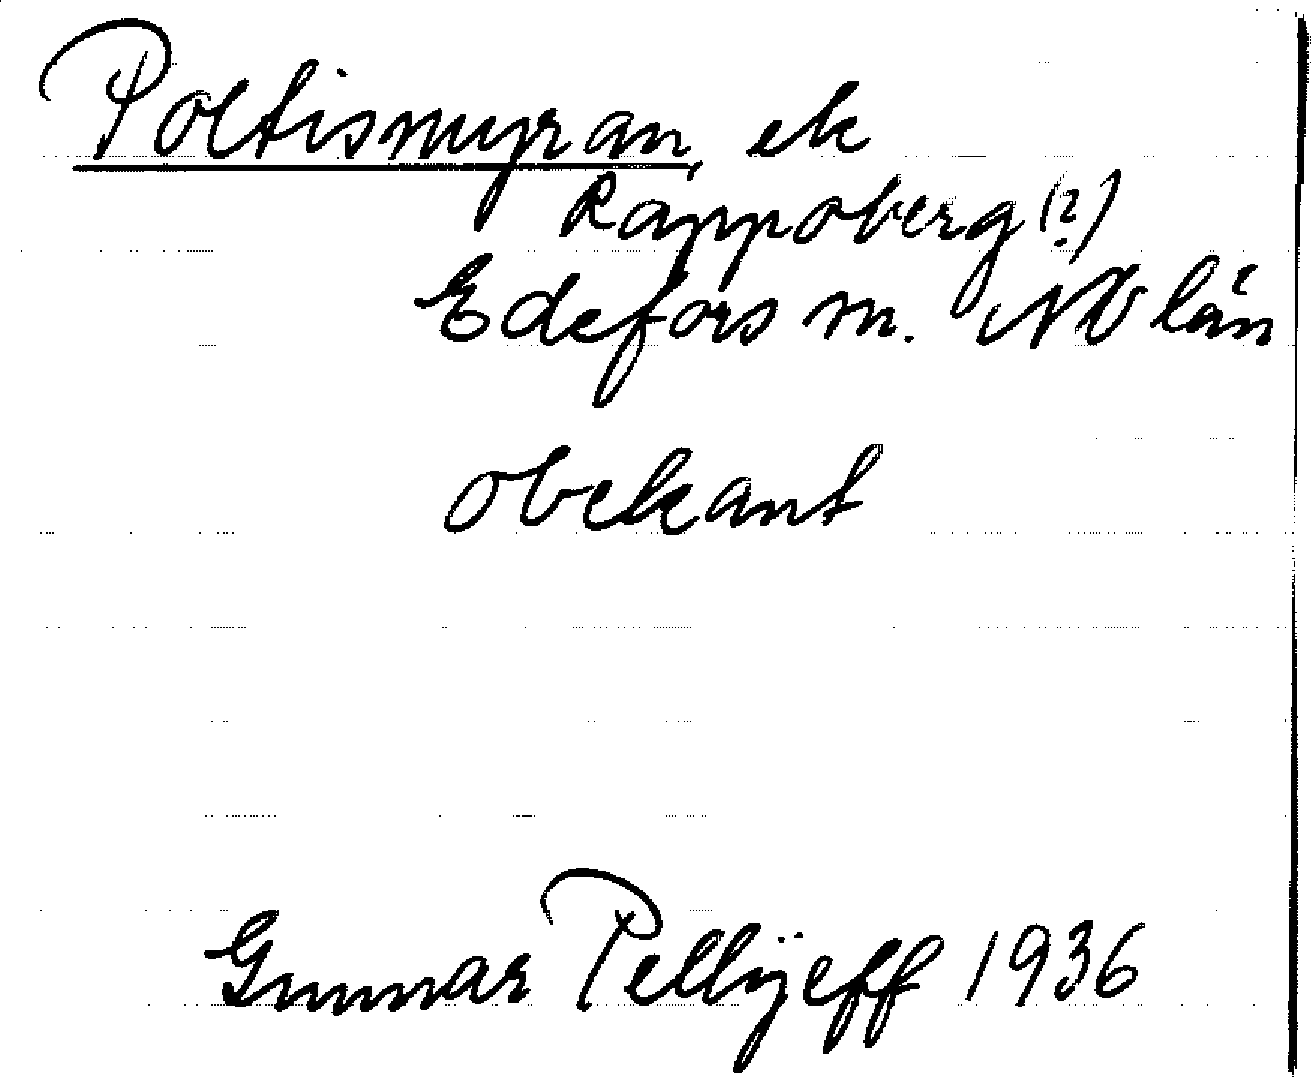 Poltismyran, ek
Rappoberg (?)
Edefors sn. NB län
obekant
Gunnar Pellijeff 1936